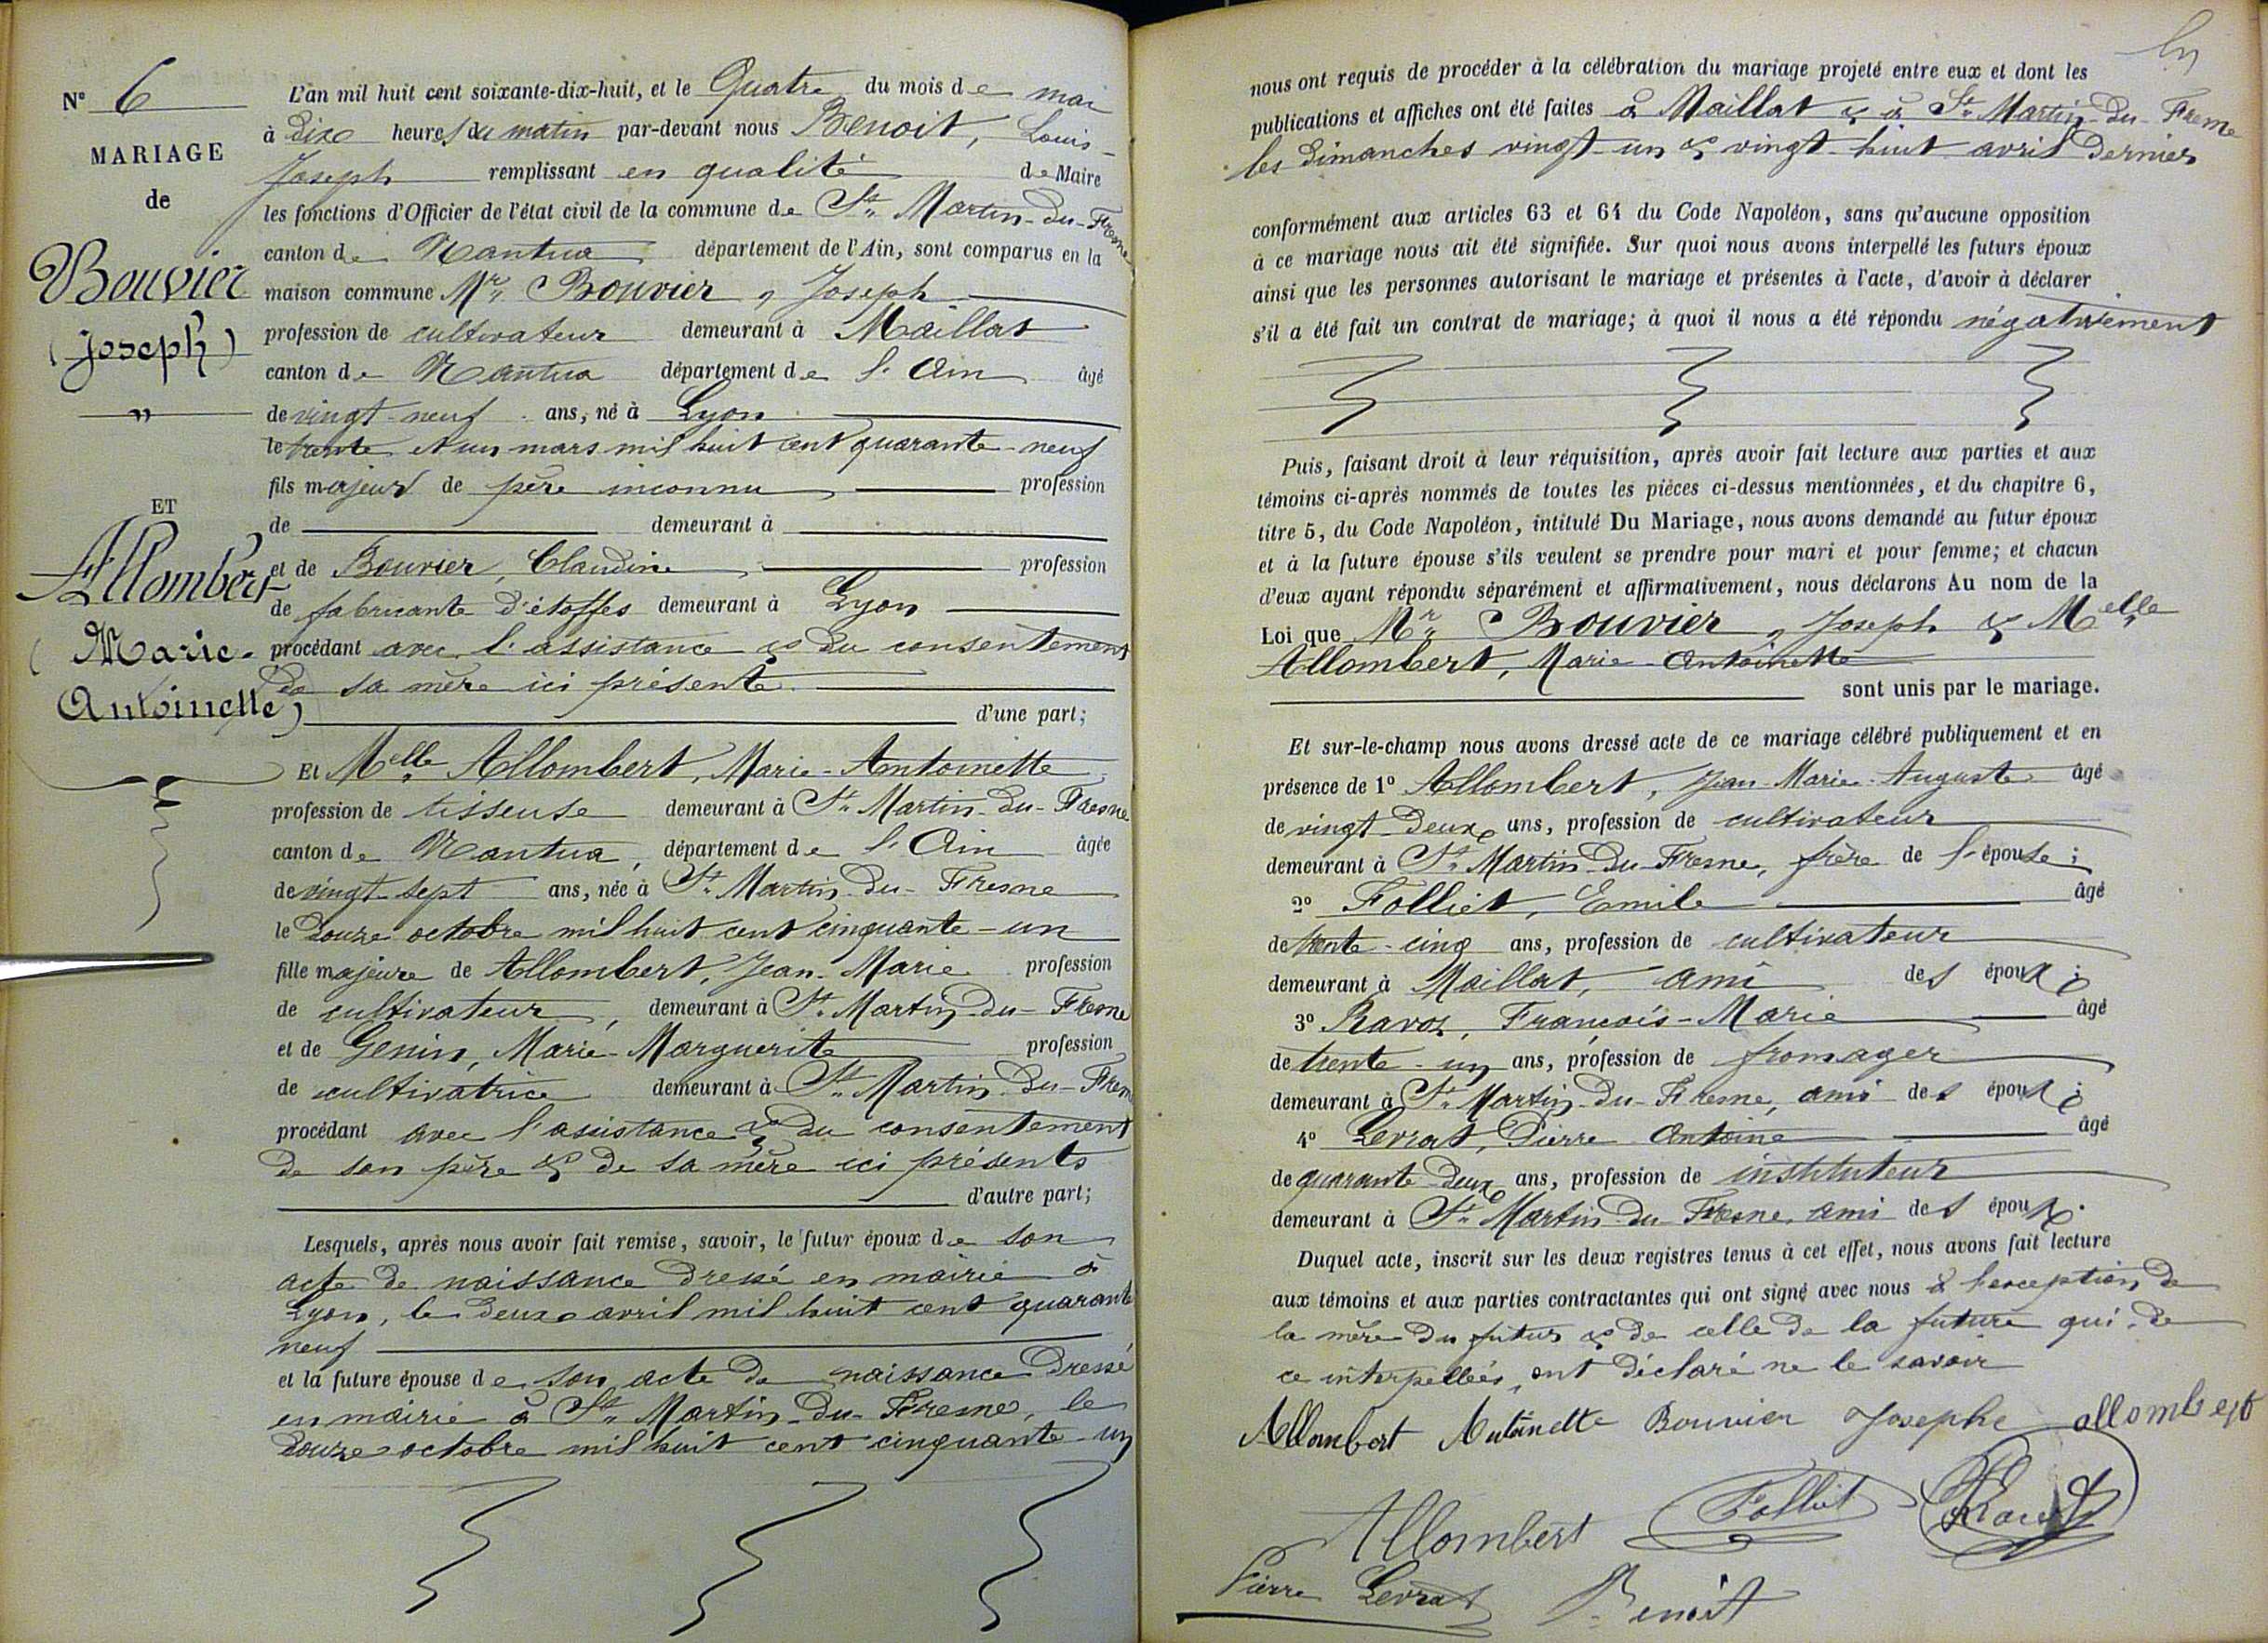 N° 6
MARIAGE
de
Bouvier
(Joseph)
"
ET
Allombert
(Marie-
Antoinette)
L'an mil huit cent soixante-dix-huit, et le Quatre du mois de mai
à dix heures du matin par-devant nous Benoit, Louis-
Joseph remplissant en qualité de Maire
les fonctions d'Officier de l'état civil de la commune de St Martin-du-Fresne
canton de Nantua département de l'Ain, sont comparus en la
maison commune Mr Bouvier, Joseph
profession de cultivateur demeurant à Maillat
canton de Nantua département de l'Ain âgé
de vingt-neuf ans, né à Lyon
le trente et un mars mil huit cent quarante-neuf
fils majeur de père inconnu profession
de demeurant à
et de Bouvier, Claudine, profession
de fabricante d'étoffes demeurant à Lyon
procédant avec l'assistance & du consentement
de sa mère ici présente.
d'une part;
Et Melle Allombert, Marie-Antoinette
profession de tisseuse demeurant à St Martin-du-Fresne
canton de Nantua, département de l'Ain âgée
de vingt-sept ans, née à St Martin-du-Fresne
le douze octobre mil huit cent cinquante-un
fille majeure de Allombert, Jean-Marie profession
de cultivateur, demeurant à St Martin-du-Fresne
et de Genin, Marie-Marguerite profession
de cultivatrice demeurant à St Martin-du-Fresn
procédant avec l'assistance & du consentement
de son père & de sa mère ici présents
d'autre part;
Lesquels, après nous avoir fait remise, savoir, le futur époux de son
acte de naissance dressé en mairie à
Lyon, le deux avril mil huit cent quarante
neuf
et la future épouse de son acte de naissance dressé
en mairie à St Martin-du-Fresne, le
douze octobre mil huit cent cinquante-un
nous ont requis de procéder à la célébration du mariage projeté entre eux et dont les
publications et affiches ont été faites à Maillat & à St Martin-du-Fresne
les dimanches vingt-un & vingt-huit avril dernier
conformément aux articles 63 et 64 du Code Napoléon, sans qu'aucune opposition
à ce mariage nous ait été signifiée. Sur quoi nous avons interpellé les futurs époux
ainsi que les personnes autorisant le mariage et présentes à l'acte, d'avoir à déclarer
s'il a été fait un contrat de mariage; à quoi il nous a été répondu négativement
Puis, faisant droit à leur réquisition, après avoir fait lecture aux parties et aux
témoins ci-après nommés de toutes les pièces ci-dessus mentionnées, et du chapitre 6,
titre 5, du Code Napoléon, intitulé Du Mariage, nous avons demandé au futur époux
et à la future épouse s'ils veulent se prendre pour mari et pour femme; et chacun
d'eux ayant répondu séparément et affirmativement, nous déclarons Au nom de la
Loi que Mr Bouvier, Joseph & Melle
Allombert, Marie-Antoinette
sont unis par le mariage.
Et sur-le-champ nous avons dressé acte de ce mariage célébré publiquement et en
présence de 1° Allombert, Jean-Marie-Auguste âgé
de vingt-deux ans, profession de cultivateur
demeurant à St Martin-du-Fresne, frère de l'épouse;
2° Folliet, Emile âgé
de trente-cinq ans, profession de cultivateur
demeurant à Maillat, ami des époux;
3° Ravoz, François-Marie âgé
de trente-un ans, profession de fromager
demeurant à St Martin-du-Fresne, ami des époux;
4° Levrat, Pierre Antoine âgé
de quarante-deux ans, profession de instituteur
demeurant à St Martin-du-Fresne, ami des époux.
Duquel acte, inscrit sur les deux registres tenus à cet effet, nous avons fait lecture
aux témoins et aux parties contractantes qui ont signé avec nous à l'exception de
la mère du futur & de celle de la future qui, de
ce interpellées, ont déclaré ne le savoir
Allombert Antoinette Bouvier Josephe allombert
Allombert Folliet
Pierre Levrat Benoit